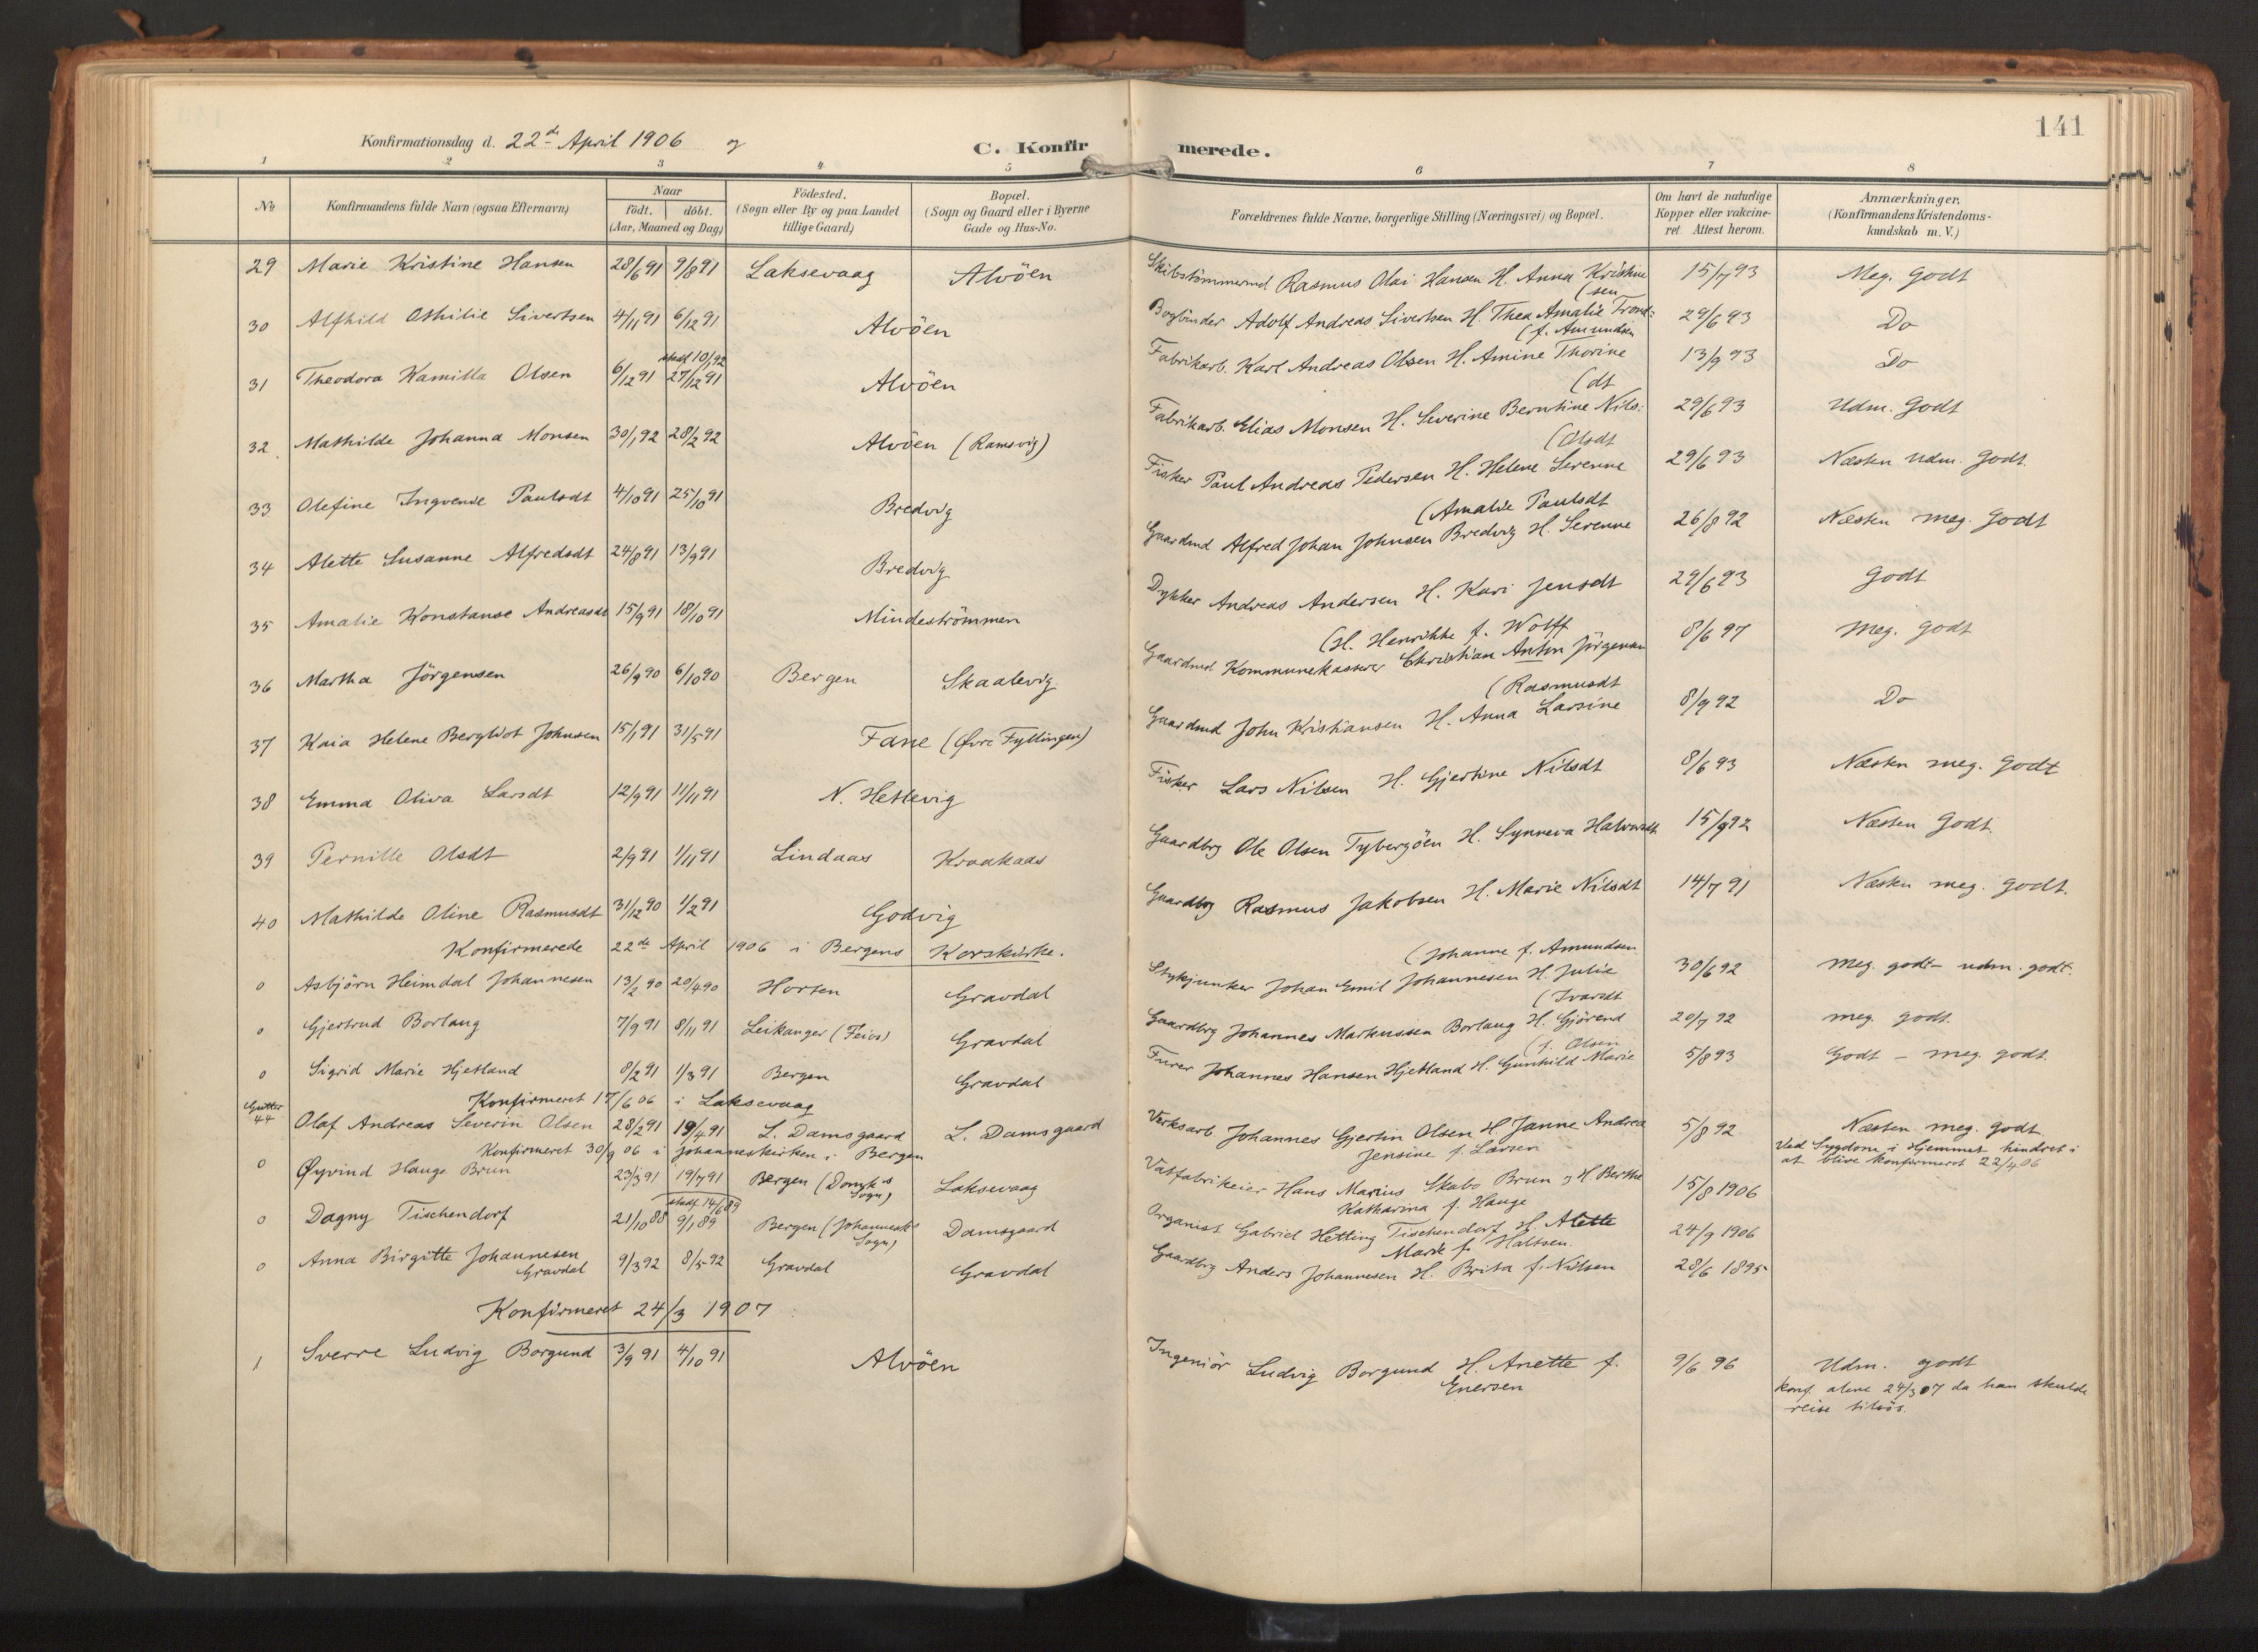 141
Konfirmationsdag d. 22de April 1906 og
C. Konfirmerede.
1 2 3 4 5 6 7 8
No Konfirmandens fulde Navn (ogsaa Efternavn) Naar født. døbt. (Aar, Maaned og Dag) Fødested. (Sogn eller By og paa Landet tillige Gaard) Bopæl. (Sogn og Gaard eller i Byerne Gade og Hus-No. Forældrenes fulde Navne, borgerlige Stilling (Næringsvei) og Bopæl. Om havt de naturlige Kopper eller vakcineret Attest herom. Anmærkninger. (Konfirmandens Kristendomskundskab m. V.)
29 Marie Kristine Hansen 28/6 91 9/8 91 Laksevaag Alvöen Skibstömmermd Rasmus Olai Hansen H. Anna Kristine 15/7 93 Meg. Godt
30 Alfhild Othilie Sivertsen 4/11 91 6/12 91 Alvöen Bogbinder Adolf Andreas Sivertsen H. Thea Amalie Trond: (sen 29/6 93 Do
31 Theodora Kamilla Olsen 6/12 91 stadf 10/1 92 27/12 91 Alvöen Fabrikarb. Karl Andreas Olsen H. Amine Thorine (f. Amundsen 13/9 93 Do
32 Mathilde Johanna Monsen 30/1 92 28/2 92 Alvöen (Ramsvig) Fabrikarb. Elias Monsen H. Severine Berntine Nils: (dt 29/6 93 Udm. Godt
33 Olefine Ingvende Paulsdt 4/10 91 25/10 91 Bredvig Fisker Paul Andreas Pedersen H. Helene Serenne (Olsdt 29/6 93 Næsten Udm. Godt
34 Alette Susanne Alfredsdt 24/8 91 13/9 91 Bredvig Gaardmd Alfred Johan Johnsen Bredvig H. Serenne (Amalie Paulsdt 26/8 92 Næsten meg. Godt
35 Amalie Konstanse Andreasdt 15/9 91 18/10 91 Mindeströmmen Dykker Andreas Andersen H. Kari Jensdt 29/6 93 Godt
36 Martha Jörgensen 26/9 90 6/10 90 Bergen Skaalevig Gaardmd Kommunekasserer Christian Anton Jörgensen (H. Henrikke f. Wolff 8/6 97 Meg. Godt
37 Kaia Helene Bergliot Johnsen 15/1 91 31/5 91 Fane (Øvre Fyllingen) Gaardmd John Kristiansen H. Anna Larsine (Rasmusdt 8/9 92 Do
38 Emma Oliva Larsdt 12/9 91 11/11 91 N. Hetlevig Fisker Lars Nilsen H. Gjertine Nilsdt 8/6 93 Næsten meg. Godt
39 Pernille Olsdt 2/9 91 1/11 91 Lindaas Kraakaas Gaardbrg Ole Olsen Tybergöen H. Synneva Halvorsdt 15/9 92 Næsten Godt.
40 Mathilde Oline Rasmusdt 31/12 90 1/2 91 Godvig Gaardbrg Rasmus Jakobsen H. Marie Nilsdt 14/7 91 Næsten meg. Godt.
Konfirmerede 22de April 1906 i Bergens Korskirke.
0 Asbjörn Heimdal Johannesen 13/2 90 20/4 90 Horten Gravdal Stykjunker Johan Emil Johannesen H. Julie (Johanne f. Amundsen 30/6 92 meg. godt - udm. godt.
0 Gjertrud Borlaug 7/9 91 8/11 91 Leikanger (Feios) Gravdal Gaardbrg Johannes Markussen Borlaug H. Gjörend (Ivarsdt 20/7 92 meg. godt.
0 Sigrid Marie Hjetland 8/2 91 1/3 91 Bergen Gravdal Furer Johannes Hansen Hjetland H. Gunhild Marie (f. Olsen 5/8 93 Godt - meg. godt
Konfirmeret 17/6 06 i Laksevaag
Gutter 44 Olaf Andreas Severin Olsen 28/2 91 19/4 91 L. Damsgaard L. Damsgaard Verksarb. Johannes Gjertin Olsen H. Janne Andrea Jensine f. Larsen 5/8 92 Næsten meg. godt Ved Sygdom i Hjemmet hindret i at blive konfirmeret 22/4 06
Konfirmeret 30/9 06 i Johanneskirken i Bergen
0 Øyvind Hauge Brun 23/3 91 19/7 91 Bergen (Domk's Sogn) Laksevaag Vatfabrikeier Hans Marius Skabo Brun og H. Berthe Katharina f. Hauge 15/8 1906
0 Dagny Tischendorf 21/10 88 stadf. 14/6 89 9/1 89 Bergen (Johannesk's Sogn) Damsgaard Organist Gabriel Hetting Tischendorf H. Alette Marie f. Haltsen. 24/9 1906
0 Anna Birgitte Johannesen Gravdal 9/3 92 8/5 92 Gravdal Gravdal Gaardbrg Anders Johannesen H. Brita f. Nilsen 28/6 1895
Konfirmeret 24/3 1907
1 Sverre Ludvig Borgund 3/9 91 4/10 91 Alvöen Ingeniör Ludvig Borgund H. Anette f. Enersen 9/6 96 Udm. godt konf. alene 24/3 07 da han skulde reise tilsös.